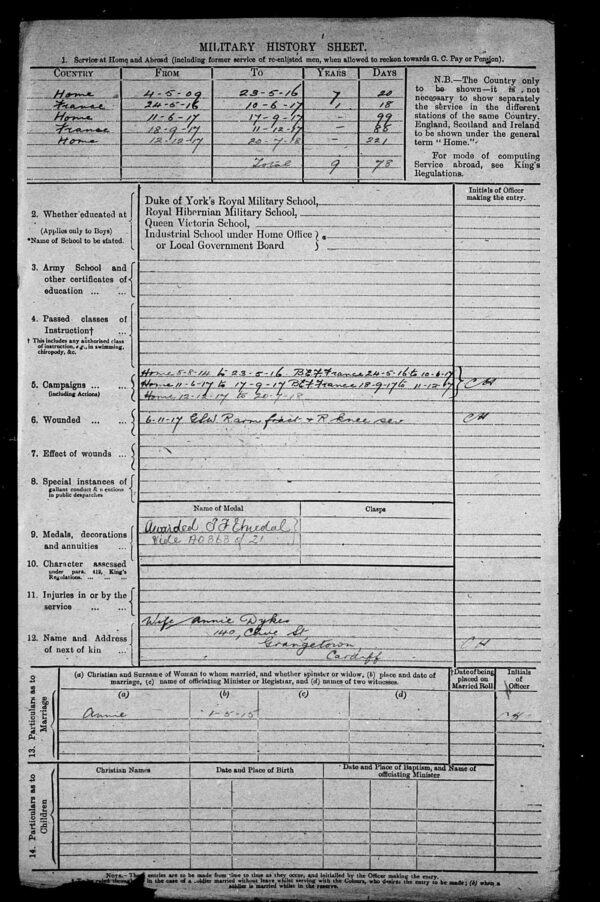 MILITARY HISTORY SHEET.
1. Service at Home and Abroad (including former service of re-enlisted men, when allowed to reckon towards G. C. Pay or Pension).
COUNTRY FROM TO YEARS DAYS
Home 4-5-09 23-5-16 7 20
France 24-5-16 10-6-17 1 18
Home 11-6-17 17-9-17 — 99
France 18-9-17 11-12-17 — 85
Home 12-12-17 20-7-18 — 221
Total 9 78
N.B.—The Country only
to be shown—it is not
necessary to show separately
the service in the different
stations of the same Country.
England, Scotland and Ireland
to be shown under the general
term "Home."
For mode of computing
Service abroad, see King's
Regulations.
Initials of Officer
making the entry.
2. Whether educated at
(Applies only to Boys)
*Name of School to be stated.
Duke of York's Royal Military School,
Royal Hibernian Military School,
Queen Victoria School,
Industrial School under Home Office
or Local Government Board
3. Army School and
other certificates of
education ... ...
4. Passed classes of
Instruction† ...
† This includes any authorised class
of instruction, e.g., in swimming,
chiropody, &c.
5. Campaigns ... ...
(including Actions)
Home 5-8-14 to 23-5-16 BEF France 24-5-16 to 10-6-17
Home 11-6-17 to 17-9-17 BEF France 18-9-17 to 11-12-17 CH
Home 12-12-17 to 20-7-18
6. Wounded ... ...
6-11-17 GSW R arm fract & R knee sev CH
7. Effect of wounds ...
8. Special instances of
gallant conduct & mentions
in public despatches
Name of Medal Clasps
9. Medals, decorations
and annuities ...
Awarded T F E medal
Vide AO 363 of 21
10. Character assessed
under para. 412, King's
Regulations. ... ... ...
11. Injuries in or by the
service ... ...
12. Name and Address
of next of kin ...
Wife Annie Dykes
140, Clive St
Grangetown,
Cardiff
CH
13. Particulars as to
Marriage
(a) Christian and Surname of Woman to whom married, and whether spinster or widow, (b) place and date of
marriage, (c) name of officiating Minister or Registrar, and (d) names of two witnesses.
†Date of being
placed on
Married Roll
Initials
of
Officer
(a) (b) (c) (d)
Annie 1-5-15
14. Particulars as to
Children
Christian Names Date and Place of Birth Date and Place of Baptism, and Name of
officiating Minister
NOTE.— entries are to be made from time to time as they occur, and initialled by the Officer making the entry.
† To be ruled through in the case of a soldier married without leave whilst serving with the Colours, who desires the entry to be made; (b) when a
soldier is married whilst in the reserve.